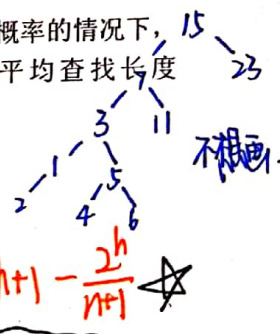 概率的情况下，
平均查找长度
15
7 23
3 11
1 5
2 4 6
h+1 - 2^h/(n+1)